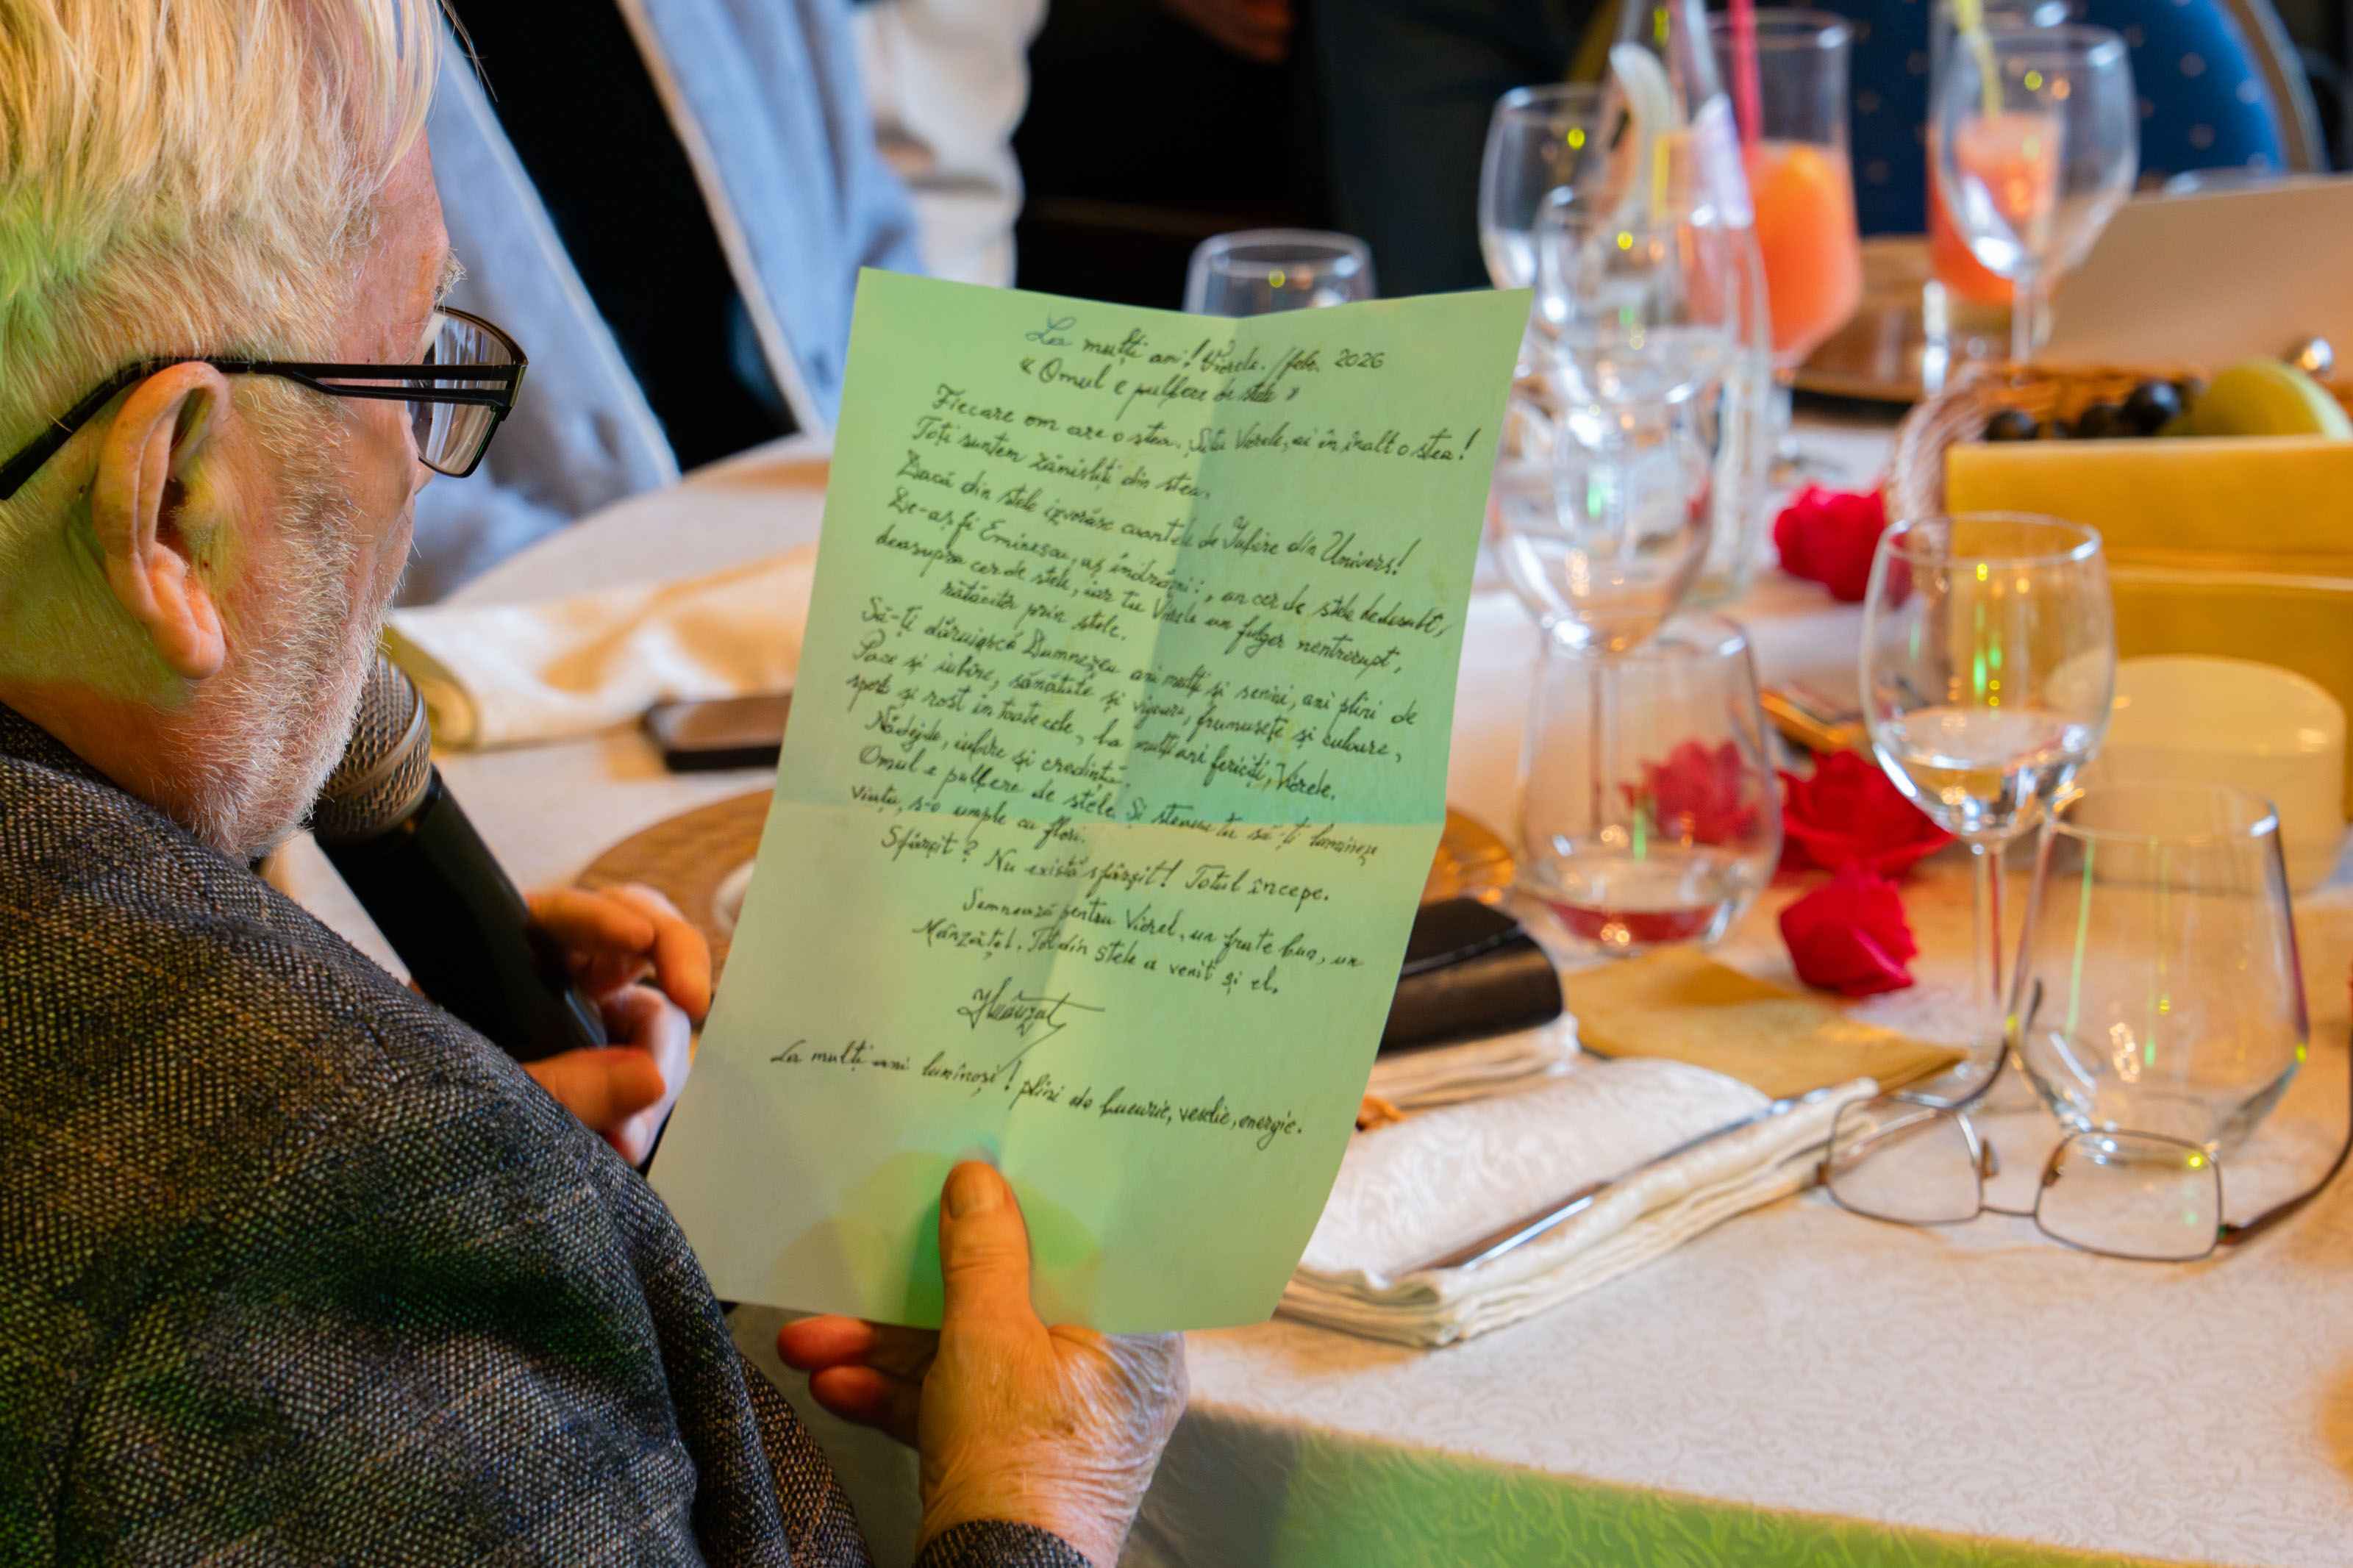 La mulți ani! Viorele. /febr. 2026
« Omul e pulbere de stele »
Fiecare om are o stea. Și tu Viorele, ai în înalt o stea!
Toți suntem zămisliți din stea.
Dacă din stele izvorăsc cuantele de Iubire din Univers!
De-aș fi Eminescu, aș îndrăzni: , un cer de stele dedesubt,
deasupra cer de stele, iar tu Viorele un fulger nentrerupt,
rătăcitor prin stele.
Să-ți dăruiască Dumnezeu ani mulți și senini, ani plini de
Pace și iubire, sănătate și vigoare, frumusețe și culoare,
spor și rost în toate cele, La mulți ani fericiți, Viorele.
Nădejde, iubire și credință.
Omul e pulbere de stele. Și steaua ta să-ți lumineze
viața, s-o umple cu flori.
Sfârșit? Nu există sfârșit! Totul începe.
Semnează pentru Viorel, un frate bun, un
Mânzățel. Tot din stele a venit și el.
La mulți ani luminoși! plini de bucurie, veselie, energie.